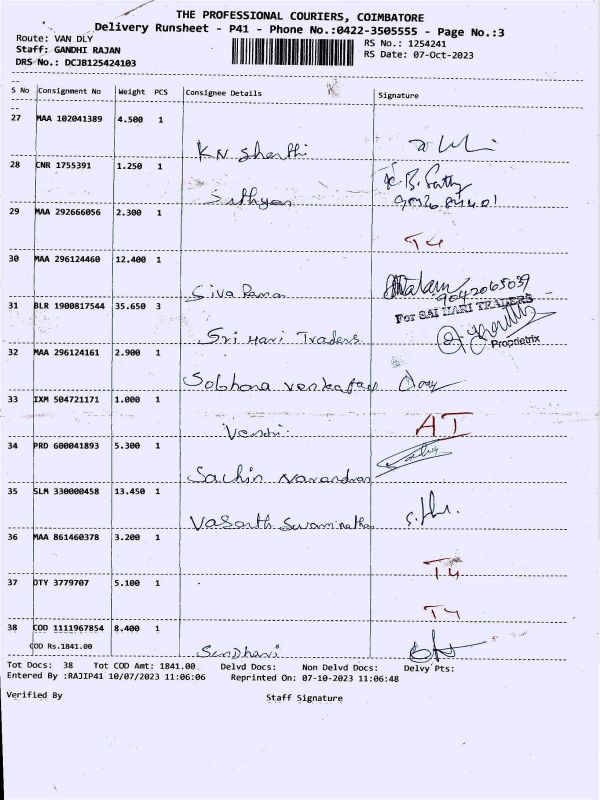 THE PROFESSIONAL COURIERS, COIMBATORE
Delivery Runsheet - P41 - Phone No.:0422-3505555 - Page No.:3
Route: VAN DLY
RS No.: 1254241
Staff: GANDHI RAJAN
RS Date: 07-Oct-2023
DRS No.: DCJB125424103
S No Consignment No Weight PCS Consignee Details Signature
27 MAA 102041389 4.500 1
KN Shanthi
28 CNR 1755391 1.250 1
K.B. Sathy
Sathyan
29 MAA 292666056 2.300 1
T4
30 MAA 296124460 12.400 1
9042065039
Siva Raman
31 BLR 1900817544 35.650 3
For SAI HARI TRADERS
Sri Hari Traders
Proprietrix
32 MAA 296124161 2.900 1
Sobhana Venkatan
33 IXM 504721171 1.000 1
AT
34 PRD 600041893 5.300 1
Sachin Narendran
35 SLM 330000458 13.450 1
Vasanth Swaminathan
36 MAA 861460378 3.200 1
T4
37 OTY 3779707 5.100 1
T4
38 COD 1111967854 8.400 1
COD Rs.1841.00
Tot Docs: 38 Tot COD Amt: 1841.00 Delvd Docs: Non Delvd Docs: Delvy Pts:
Entered By :RAJIP41 10/07/2023 11:06:06 Reprinted On: 07-10-2023 11:06:48
Verified By Staff Signature